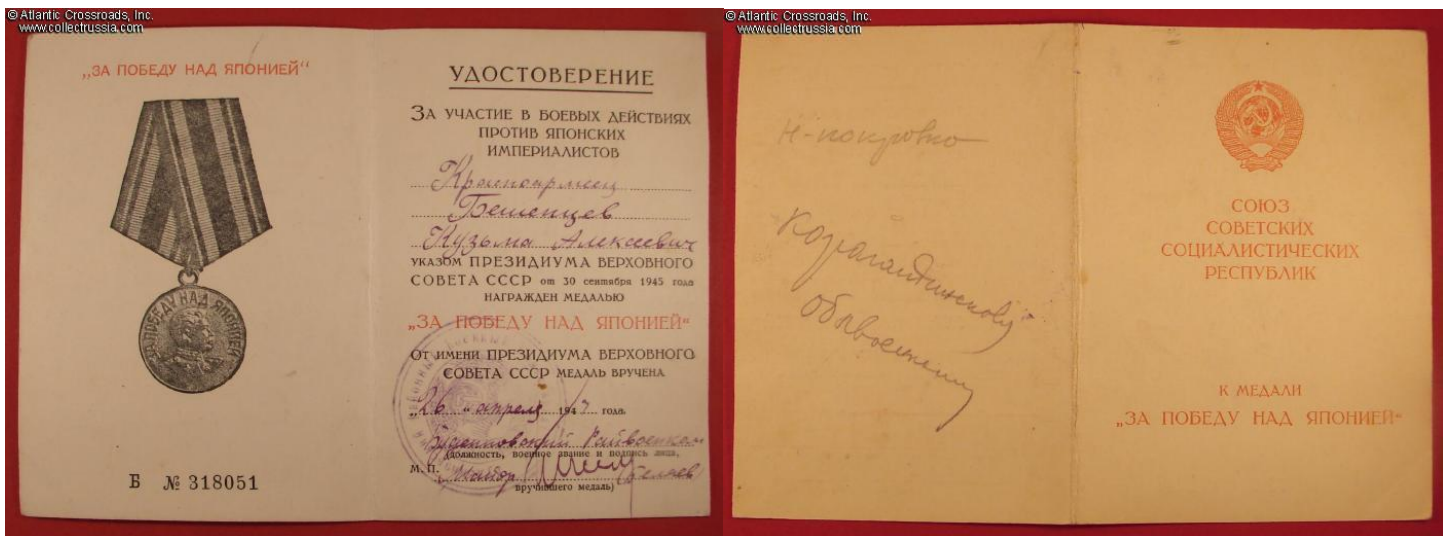 © Atlantic Crossroads, Inc.
www.collectrussia.com
„ЗА ПОБЕДУ НАД ЯПОНИЕЙ“
ЗА ПОБЕДУ НАД ЯПОНИЕЙ
Б № 318051
УДОСТОВЕРЕНИЕ
ЗА УЧАСТИЕ В БОЕВЫХ ДЕЙСТВИЯХ
ПРОТИВ ЯПОНСКИХ
ИМПЕРИАЛИСТОВ
Красноармеец
Кузьма Алексеевич
УКАЗОМ ПРЕЗИДИУМА ВЕРХОВНОГО
СОВЕТА СССР от 30 сентября 1945 года
НАГРАЖДЕН МЕДАЛЬЮ
„ЗА ПОБЕДУ НАД ЯПОНИЕЙ“
ОТ ИМЕНИ ПРЕЗИДИУМА ВЕРХОВНОГО
СОВЕТА СССР МЕДАЛЬ ВРУЧЕНА
„26 “ апреля 1947 года.
Райвоенком
(должность, военное звание и подпись лица,
М. П. Майор (Беляев)
вручившего медаль)
© Atlantic Crossroads, Inc.
www.collectrussia.com
Н-покровка
Карагандинскому
Облвоенкому
СОЮЗ
СОВЕТСКИХ
СОЦИАЛИСТИЧЕСКИХ
РЕСПУБЛИК
К МЕДАЛИ
„ЗА ПОБЕДУ НАД ЯПОНИЕЙ“